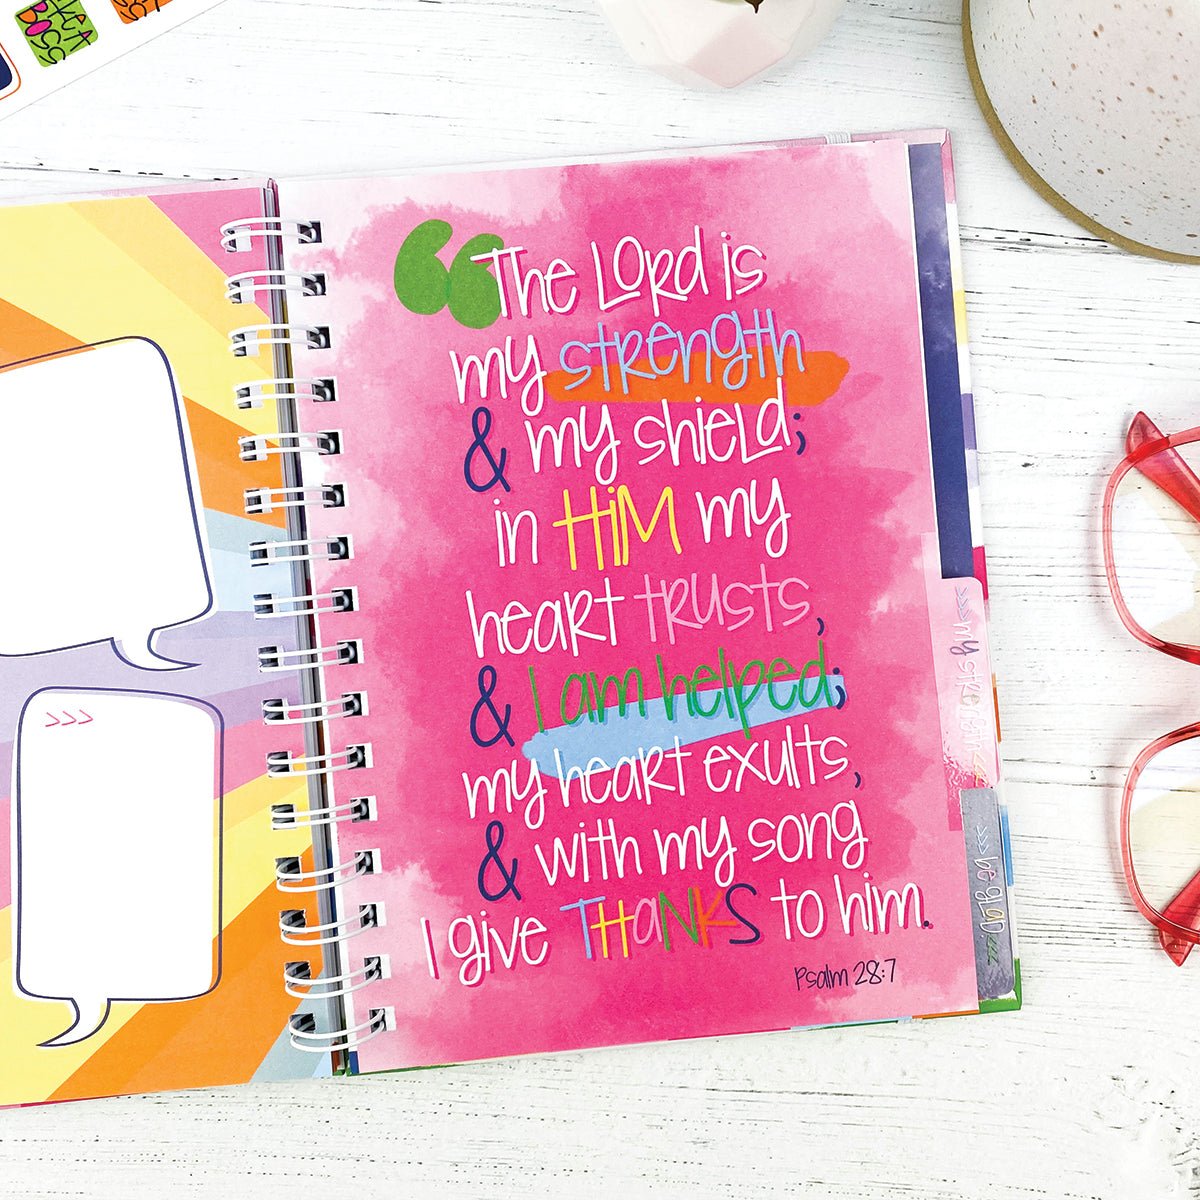 “The Lord is
my strength
& my shield;
in HiM my
heart trusts,
& I am helped;
my heart exults,
& with my song
I give THaNKS to him.
Psalm 28:7
>>>
<<<my strength>>>
>>>be glad<<<
BOSS